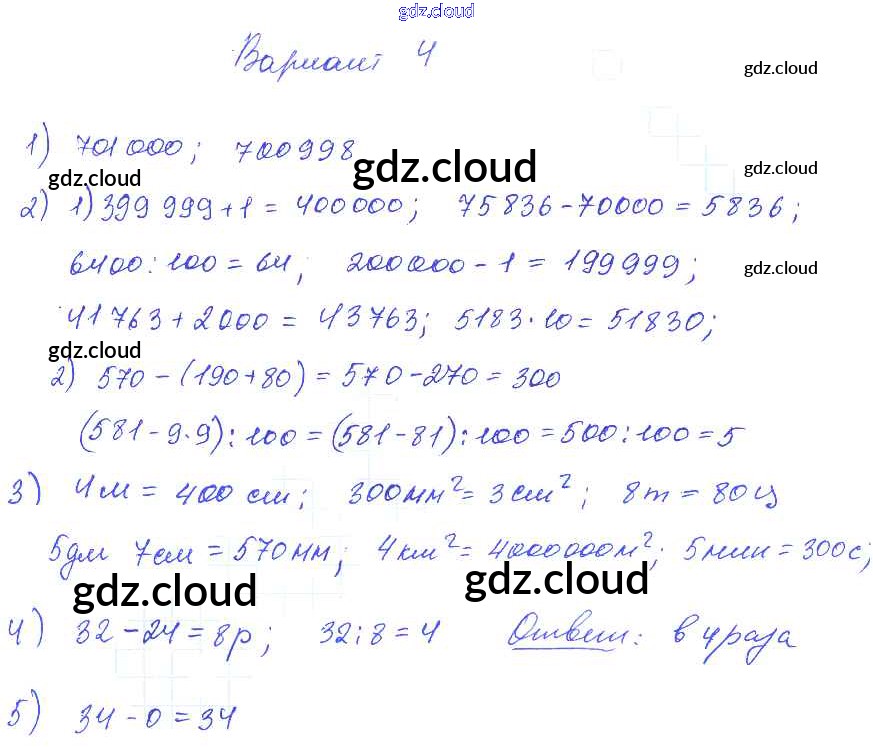 gdz.cloud
Вариант 4
gdz.cloud
1) 701000; 700998
gdz.cloud
gdz.cloud
gdz.cloud
2) 1) 399 999+1 = 400000; 75836-70000 = 5836;
6400:100 = 64; 200000-1 = 199999;
gdz.cloud
41763+2000 = 43763; 5183·10 = 51830;
gdz.cloud
2) 570-(190+80) = 570-270 = 300
(581-9·9):100 = (581-81):100 = 500:100 = 5
3) 4м = 400 см; 300мм² = 3см²; 8т = 80ц
5дм 7см = 570мм; 4км² = 4000000м²; 5мин = 300с;
gdz.cloud
gdz.cloud
4) 32-24 = 8р; 32:8 = 4 Ответ: в 4 раза
5) 34-0 = 34